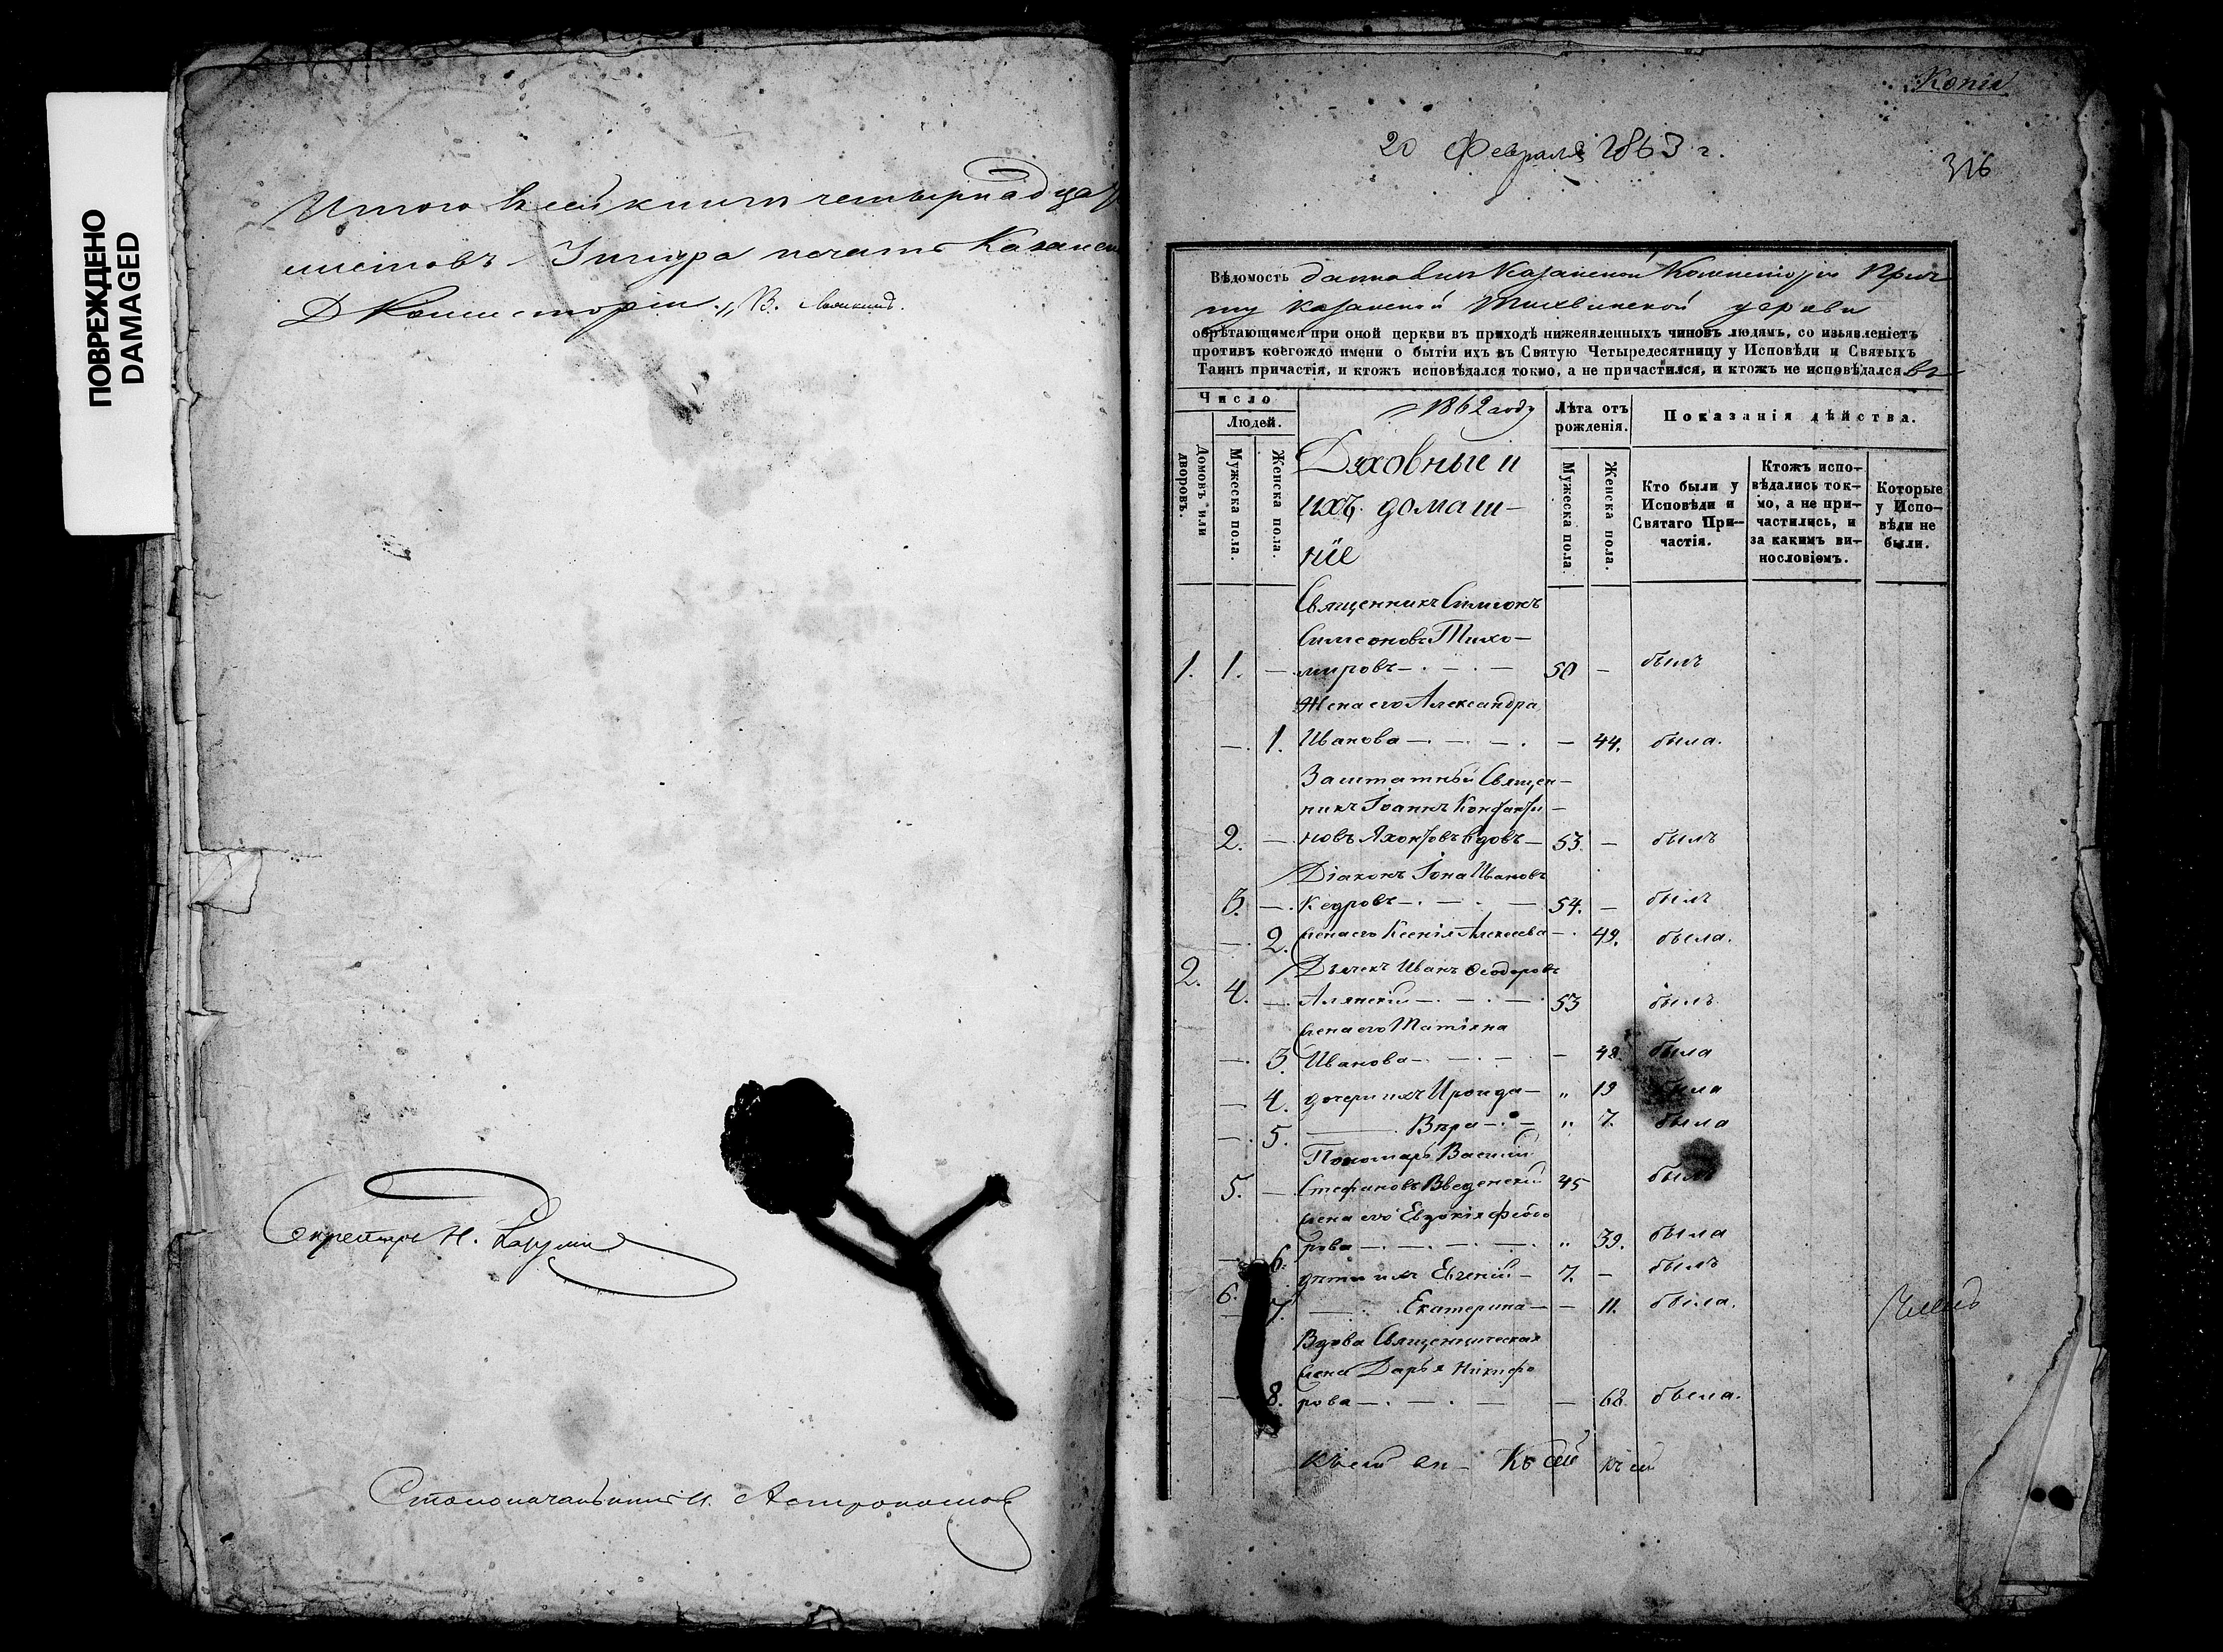 ПОВРЕЖДЕНО
DAMAGED
Итого в сей книге четырнадца
листовъ. Шнура печать Казанск
Д Консисторіи.
Секретарь Н.
Столоначальникъ И. Астрономовъ
Копія
20 Февраля 1863 г.
316
Вѣдомость данная изъ Казанской Консисторіи Прич
ту Казанской Тихвинской церкви
обрѣтающимся при оной церкви въ приходѣ нижеявленныхъ чиновъ людямъ, со изъявленіетъ
противъ коегождо имени о бытіи ихъ въ Святую Четыредесятницу у Исповѣди и Святыхъ
Таинъ причастія, и ктожъ исповѣдался токмо, а не причастился, и ктожъ не исповѣдался въ
Число
Людей.
Домовъ или дворовъ.
Мужеска пола.
Женска пола.
1862 году
Духовные и
ихъ домаш-
ніе
Лѣта отъ рожденія.
Мужеска пола
Женска пола.
Показанія дѣйства.
Кто были у Исповѣди и Святаго При-частія.
Ктожъ испо-вѣдались ток-мо, а не при-частились, и за какимъ ви-нословіемъ.
Которые у Испо-вѣди не были.
Священникъ Симеонъ
Симеоновъ Тихо-
1. 1. — мировъ — 50 — былъ
Жена его Александра
— 1. Иванова — — 44. была.
Заштатный Священ-
никъ Іоаннъ Константи-
2. — новъ Яхонтовъ вдовъ — 53. — былъ
Діаконъ Іона Ивановъ
3. — Кедровъ — 54. — былъ
— 2. жена его Ксенія Алексеева — 49. была.
2. Дьячекъ Иванъ Ѳеодоровъ
4. — Алянскій — 53 былъ
жена его Татіяна
— 3. Иванова — — 48. была
— 4. дочери ихъ Ираида — " 19 была
— 5. — Вѣра — " 7. была
Пономарь Василій
5. — Стефановъ Введенскій 45 былъ
жена его Евдокія Ѳеодо
— 6. рова — " 39. была
6. дѣти ихъ Евгеній — 7. — былъ
— 7. — Екатерина — — 11. была.
Вдова Священническая
жена Дарья Никифо
— 8. рова — — 68. была.
Къ сей Къ сей
Членъ